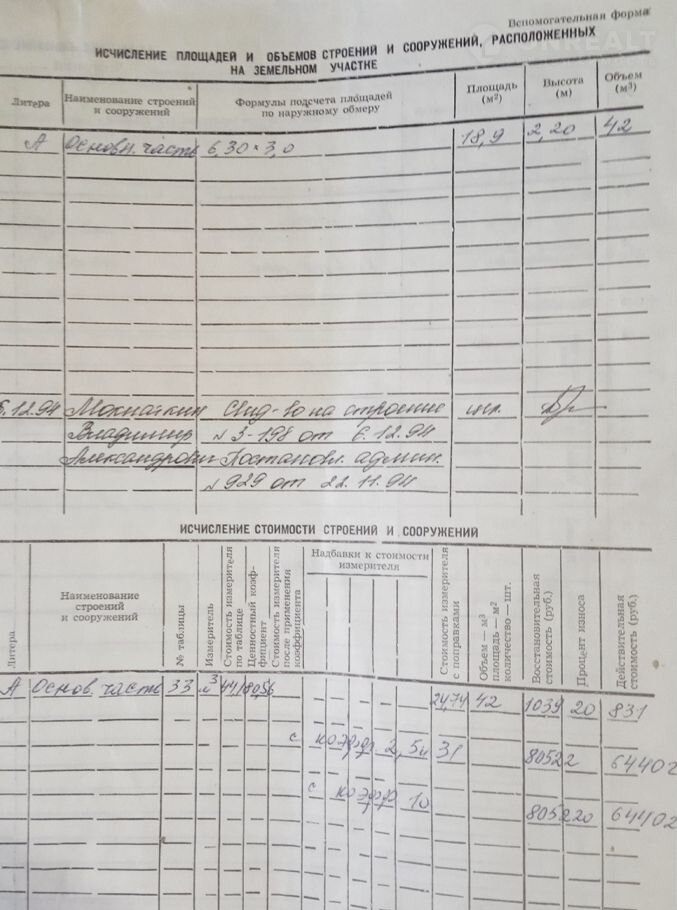 Вспомогательная форма
ONREALT
ИСЧИСЛЕНИЕ ПЛОЩАДЕЙ И ОБЪЕМОВ СТРОЕНИЙ И СООРУЖЕНИЙ, РАСПОЛОЖЕННЫХ
НА ЗЕМЕЛЬНОМ УЧАСТКЕ
Литера Наименование строений и сооружений Формулы подсчета площадей по наружному обмеру Площадь (м²) Высота (м) Объем (м³)
А Основн. часть 6,30 × 3,0 18,9 2,20 42
6.12.94 Мохнаткин Свид-во на строение
Владимир № 3-198 от 6.12.94
Александрович Постановл. админ.
№ 929 от 22.11.94
ИСЧИСЛЕНИЕ СТОИМОСТИ СТРОЕНИЙ И СООРУЖЕНИЙ
Литера Наименование строений и сооружений № таблицы Измеритель Стоимость измерителя по таблице Ценностный коэффициент Стоимость измерителя после применения коэффициента Надбавки к стоимости измерителя Стоимость измерителя с поправками Объем — м³ площадь — м² количество — шт. Восстановительная стоимость (руб.) Процент износа Действительная стоимость (руб.)
А Основ. часть 33 м³ 24,74 42 1039 20 831
с коэфф 2,5 и 31 64402
с коэфф 10
20 64402